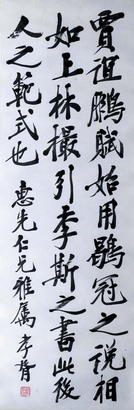 賈誼鵬賦始用鶡冠之説相
如上林撮引李斯之書此後
人之範式也
惠先仁兄雅属 孝胥